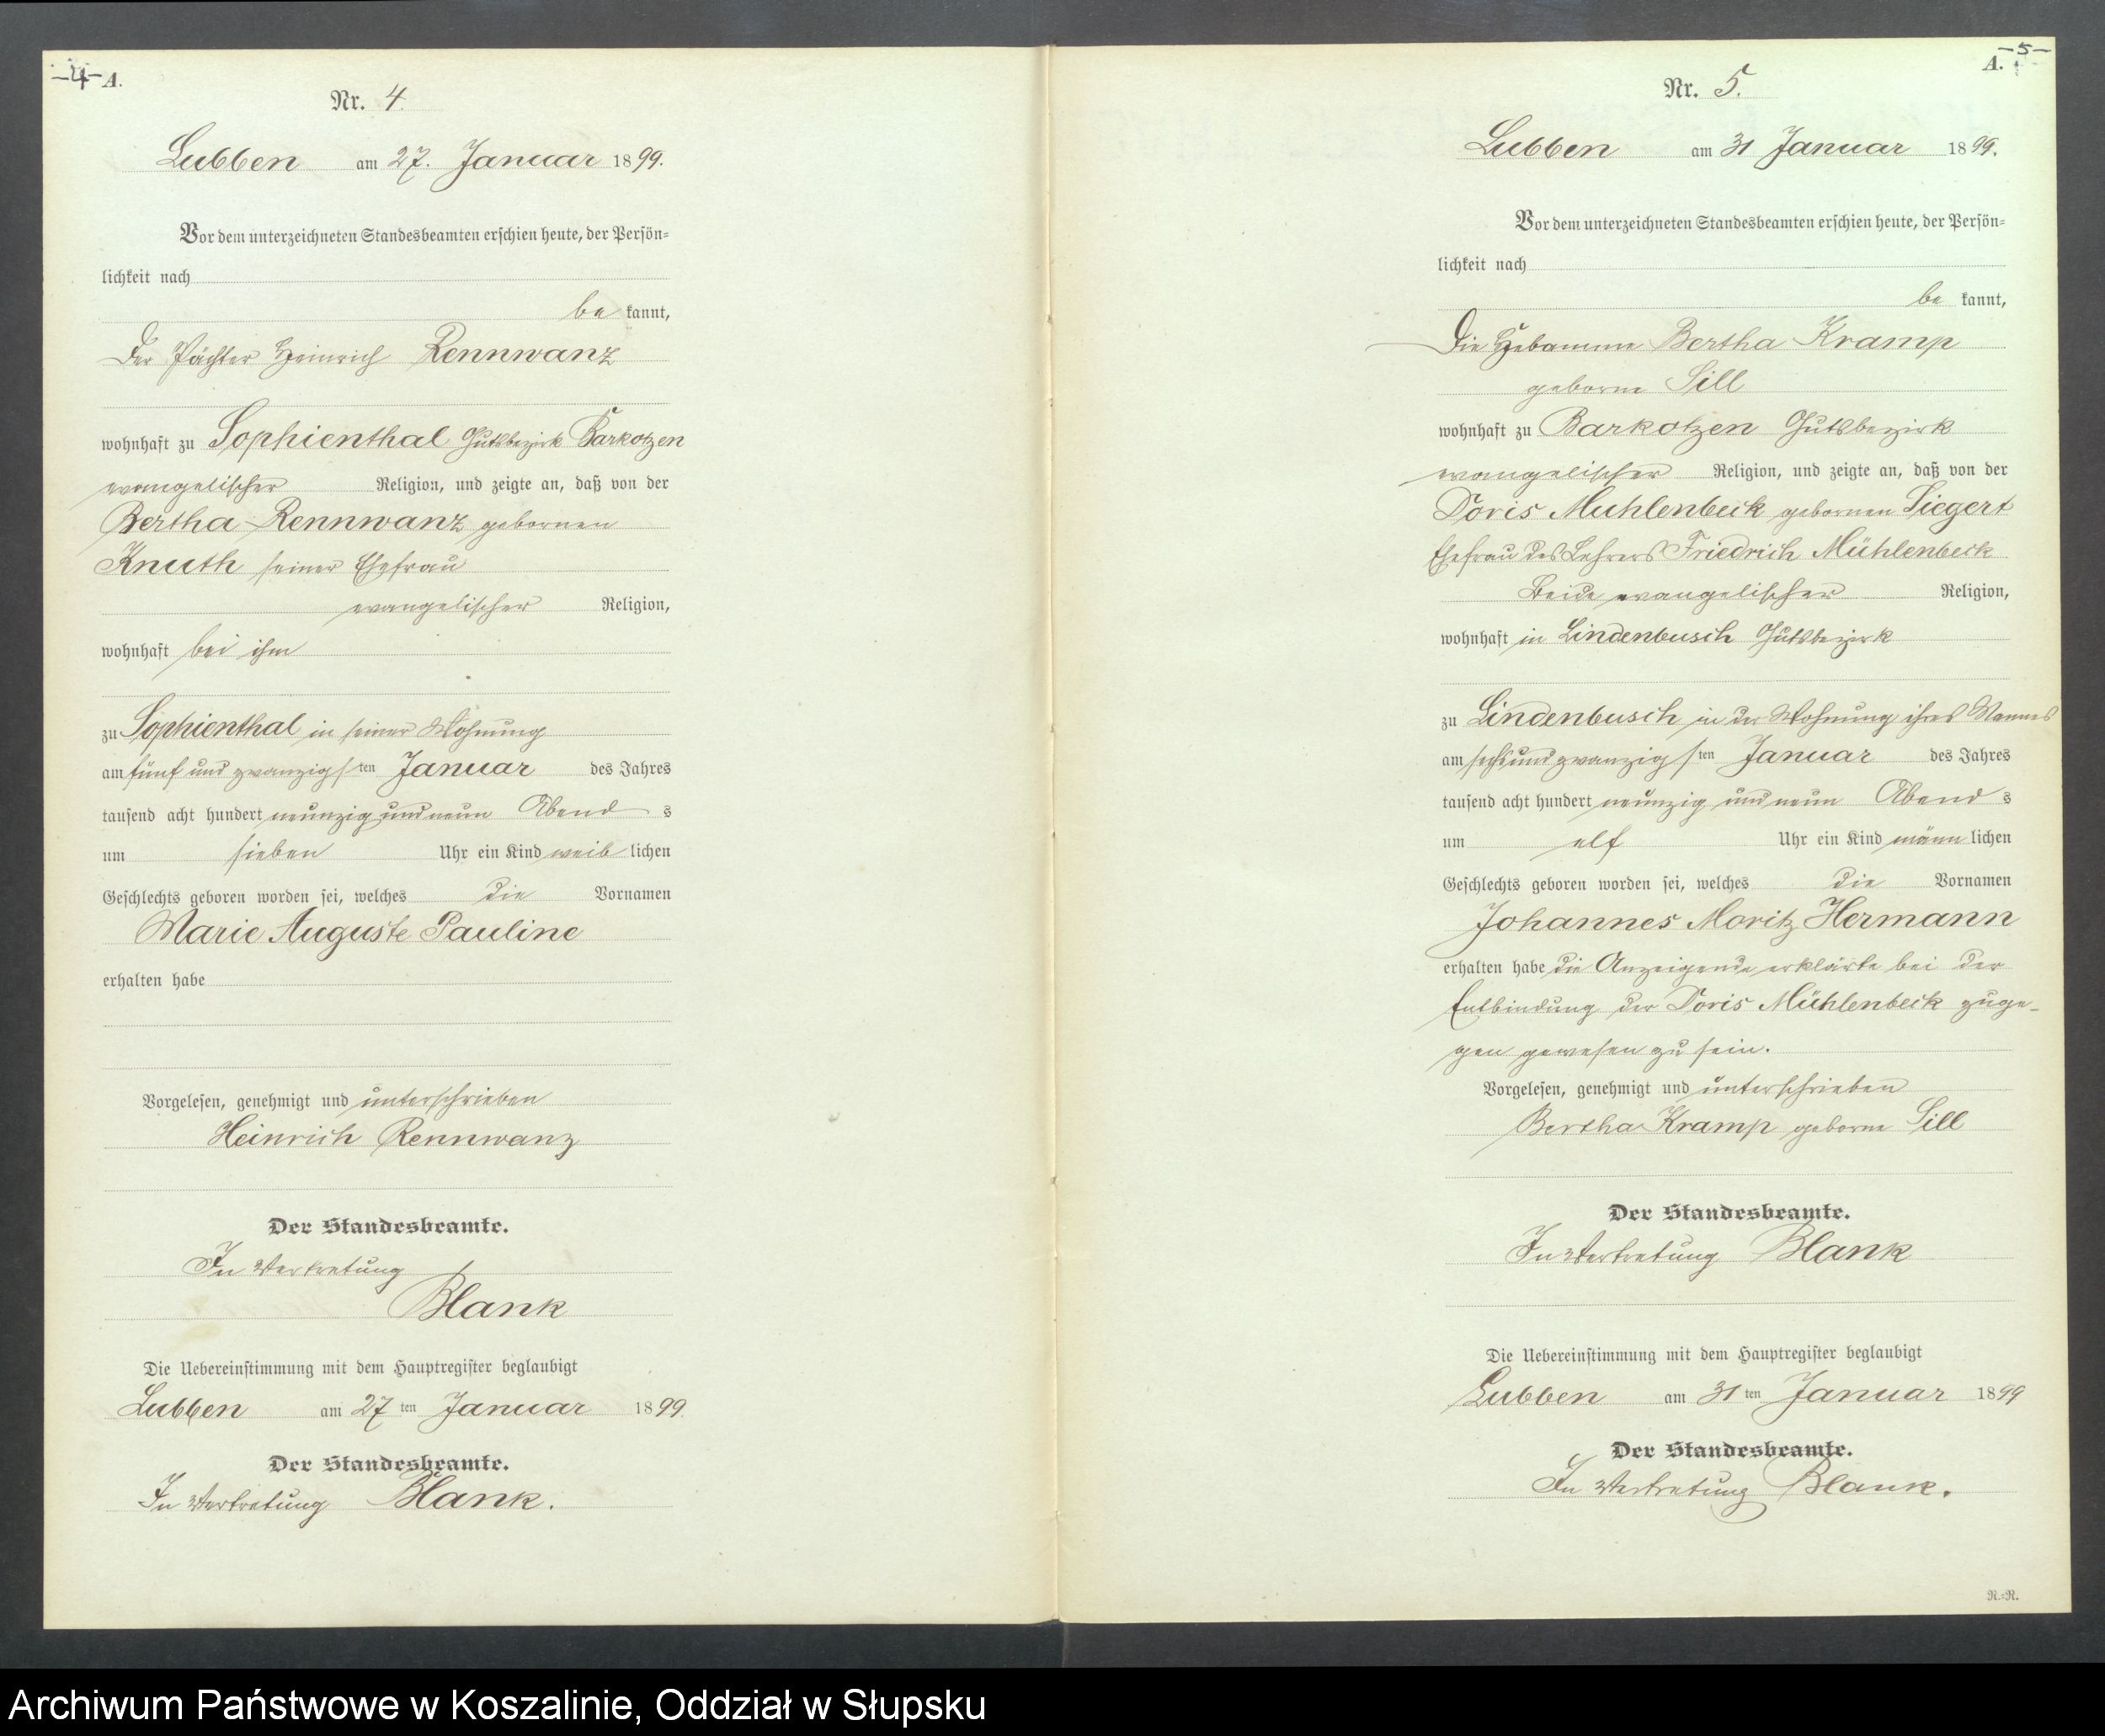 -4- A.
Nr. 4.
Lubben am 27. Januar 1899.
Vor dem unterzeichneten Standesbeamten erschien heute, der Persön=
lichkeit nach
be kannt,
Der Pächter Heinrich Rennwanz
wohnhaft zu Sophienthal Gutsbezirk Barkotzen
evangelischer Religion, und zeigte an, daß von der
Bertha Rennwanz gebornen
Knuth seiner Ehefrau
evangelischer Religion,
wohnhaft bei ihm
zu Sophienthal in seiner Wohnung
am fünf und zwanzigsten Januar des Jahres
tausend acht hundert neunzig und neun Abend s
um sieben Uhr ein Kind weib lichen
Geschlechts geboren worden sei, welches die Vornamen
Marie Auguste Pauline
erhalten habe
Vorgelesen, genehmigt und unterschrieben
Heinrich Rennwanz
Der Standesbeamte.
In Vertretung
Blank
Die Uebereinstimmung mit dem Hauptregister beglaubigt
Lubben am 27 ten Januar 1899.
Der Standesbeamte.
In Vertretung Blank.
-5-
A.
Nr. 5.
Lubben am 31 Januar 1899.
Vor dem unterzeichneten Standesbeamten erschien heute, der Persön=
lichkeit nach
be kannt,
Die Hebamme Bertha Kramp
geborne Sill
wohnhaft zu Barkotzen Gutsbezirk
evangelischer Religion, und zeigte an, daß von der
Doris Muhlenbeck gebornen Siegert
Ehefrau des Lehrers Friedrich Mühlenbeck
Beide evangelischer Religion,
wohnhaft in Lindenbusch Gutsbezirk
zu Lindenbusch in der Wohnung ihres Mannes
am sechsundzwanzigsten Januar des Jahres
tausend acht hundert neunzig und neun Abend s
um elf Uhr ein Kind männ lichen
Geschlechts geboren worden sei, welches die Vornamen
Johannes Moritz Hermann
erhalten habe die Anzeigende erklärte bei der
Entbindung der Doris Mühlenbeck zuge-
gen gewesen zu sein.
Vorgelesen, genehmigt und unterschrieben
Bertha Kramp geborne Sill
Der Standesbeamte.
In Vertretung Blank
Die Uebereinstimmung mit dem Hauptregister beglaubigt
Lubben am 31 ten Januar 1899
Der Standesbeamte.
In Vertretung Blank.
R.=R.
Archiwum Państwowe w Koszalinie, Oddział w Słupsku